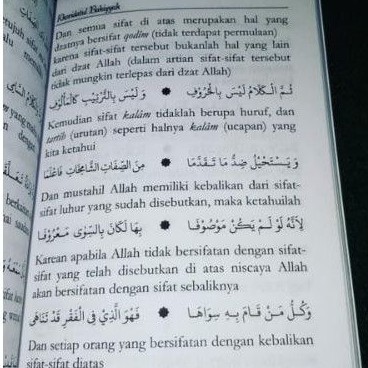 Kharidatul Bahiyyah
Dan semua sifat di atas merupakan hal yang
dzatnya bersifat qadim (tidak terdapat permulaan)
karena sifat-sifat tersebut bukanlah hal yang lain
dari dzat Allah (dalam artian sifat-sifat tersebut
tidak mungkin terlepas dari dzat Allah)
ثُمَّ الْكَلَامُ لَيْسَ بِالْحُرُوْفِ ۞ وَلَيْسَ بِالتَّرْتِيْبِ كَالْمَأْلُوْفِ
Kemudian sifat kalâm tidaklah berupa huruf, dan
tartib (urutan) seperti halnya kalâm (ucapan) yang
kita ketahui
وَيَسْتَحِيْلُ ضِدُّ مَا تَقَدَّمَا ۞ مِنَ الصِّفَاتِ الشَّامِخَاتِ فَاعْلَمَا
Dan mustahil Allah memiliki kebalikan dari sifat-
sifat luhur yang sudah disebutkan, maka ketahuilah
لِأَنَّهُ لَوْ لَمْ يَكُنْ مَوْصُوْفَا ۞ بِهَا لَكَانَ بِالسِّوَى مَعْرُوْفَا
Karean apabila Allah tidak bersifatan dengan sifat-
sifat yang telah disebutkan di atas niscaya Allah
akan bersifatan dengan sifat sebaliknya
وَكُلُّ مَنْ قَامَ بِهِ سِوَاهَا ۞ فَهُوَ الَّذِيْ فِي الْفَقْرِ قَدْ تَنَاهَى
Dan setiap orang yang bersifatan dengan kebalikan
sifat-sifat diatas